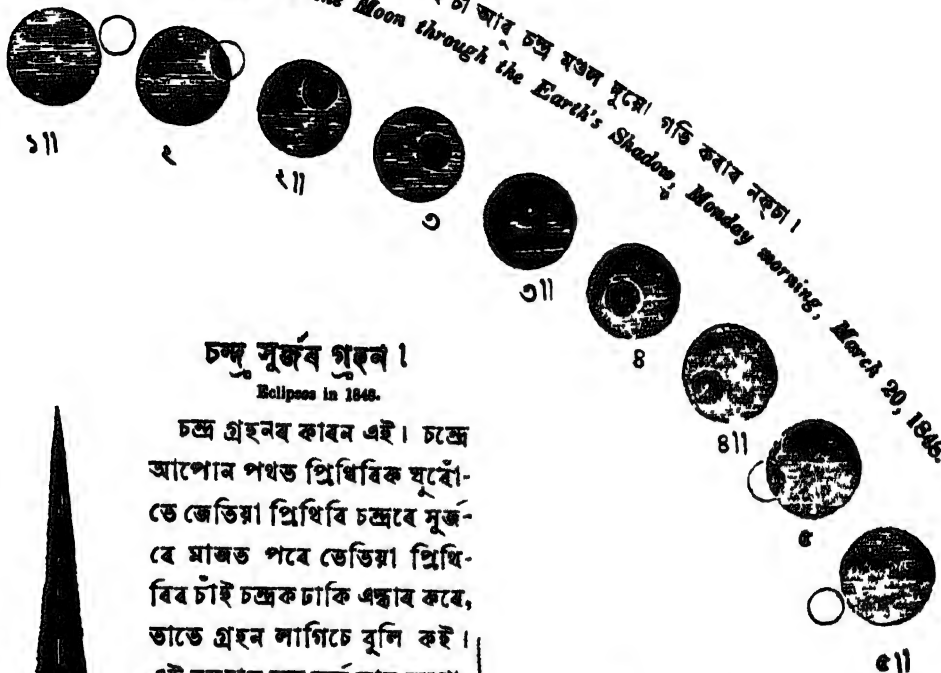 চা আৰু চন্দ্ৰ মণ্ডল দুয়ো গতি কৰাৰ নক্চা।
Moon through the Earth's Shadow, Monday morning, March 20, 1848.
১॥
২
২॥
৩
৩॥
৪
৪॥
৫
৫॥
চন্দ্ৰ সুৰ্জৰ গ্ৰহন।
Eclipses in 1848.
চন্দ্ৰ গ্ৰহনৰ কাৰন এই। চন্দ্ৰে
আপোন পথত প্ৰিথিবিক ঘুৰোঁ-
তে জেতিয়া প্ৰিথিবি চন্দ্ৰৰে সুৰ্জ-
ৰে মাজত পৰে তেতিয়া প্ৰিথি-
বিৰ চাঁই চন্দ্ৰক ঢাকি এন্ধাৰ কৰে,
তাতে গ্ৰহন লাগিচে বুলি কই।